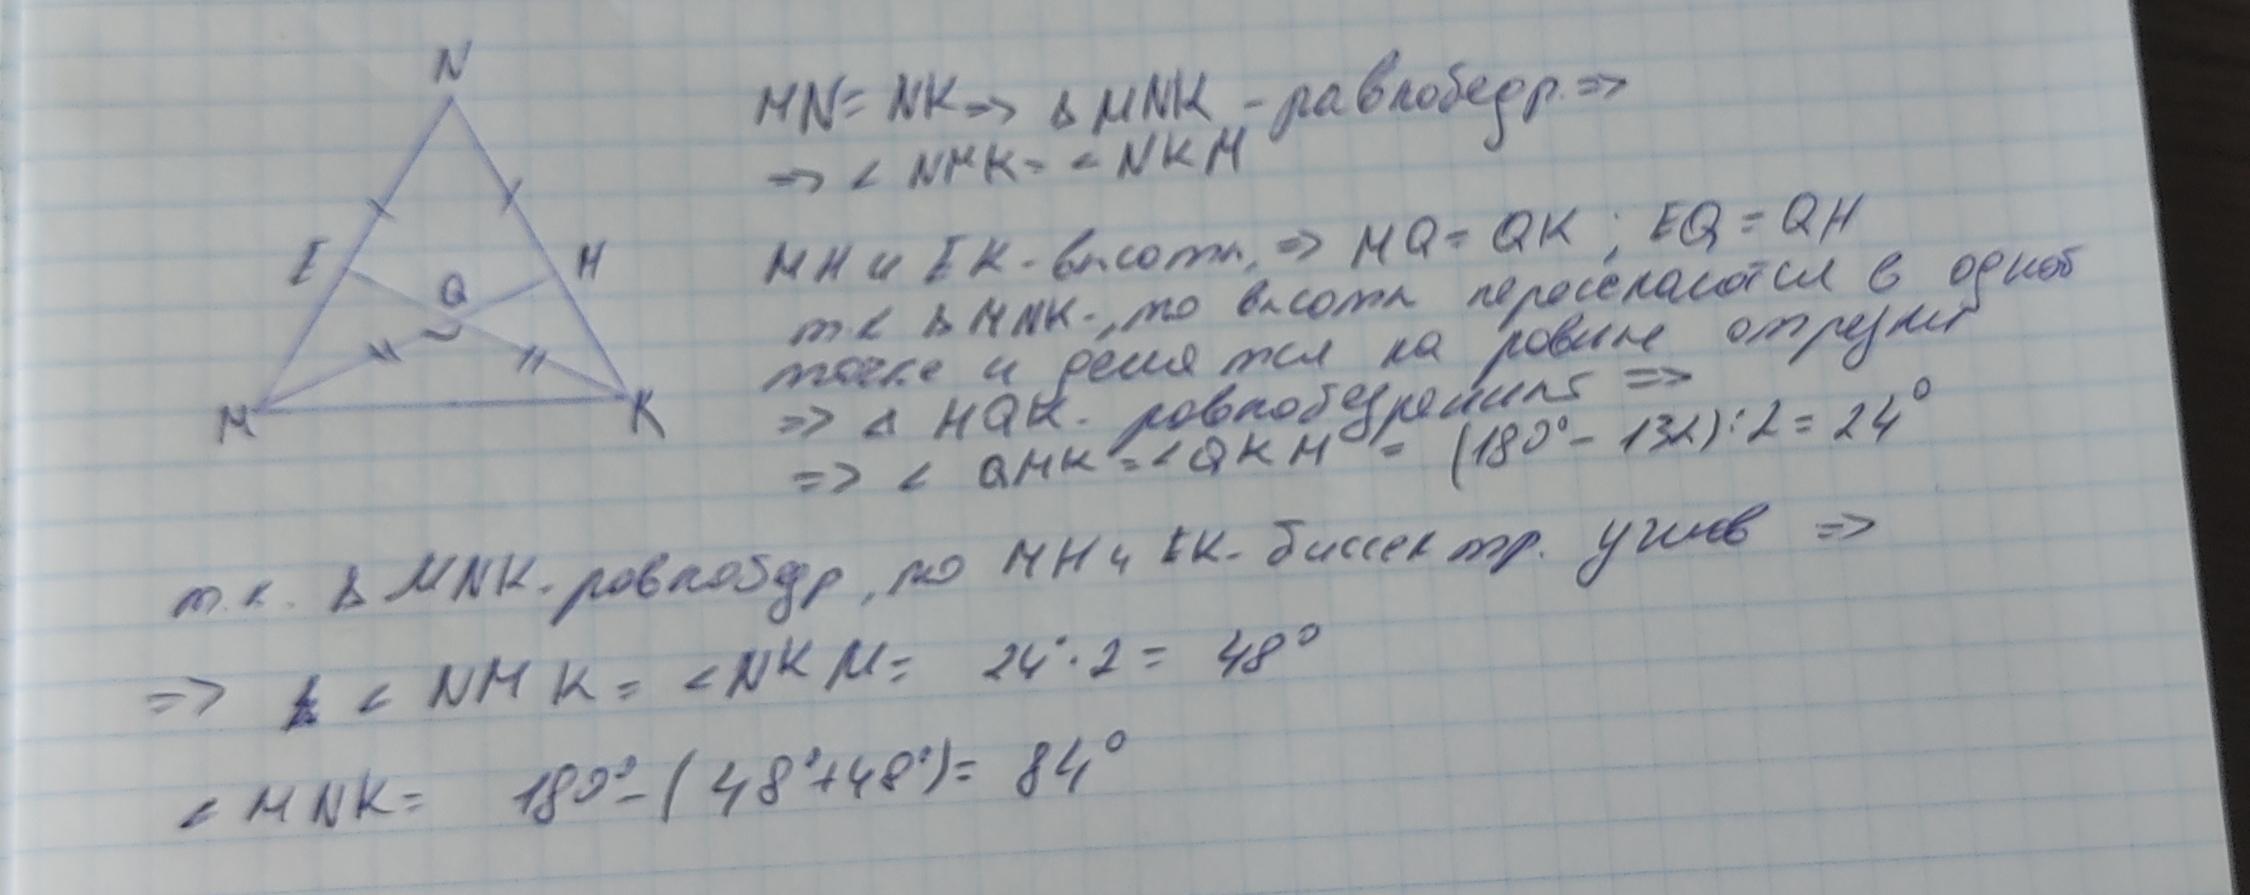 N
E
H
Q
M
K
MN = NK => Δ MNK - равнобедр. =>
=> < NMK = < NKM
MH и EK - высоты, => MQ = QK ; EQ = QH
т.к Δ MNK -, то высоты пересекаются в одной
точке и делятся на ровные отрезки
=> Δ MQK - ровнобедренный =>
=> < QMK = < QKM = (180° - 132) : 2 = 24°
т.к. Δ MNK - ровнобедр, то MH и EK - биссектр. углов =>
=> < NMK = < NKM = 24° · 2 = 48°
< MNK = 180° - ( 48° + 48° ) = 84°